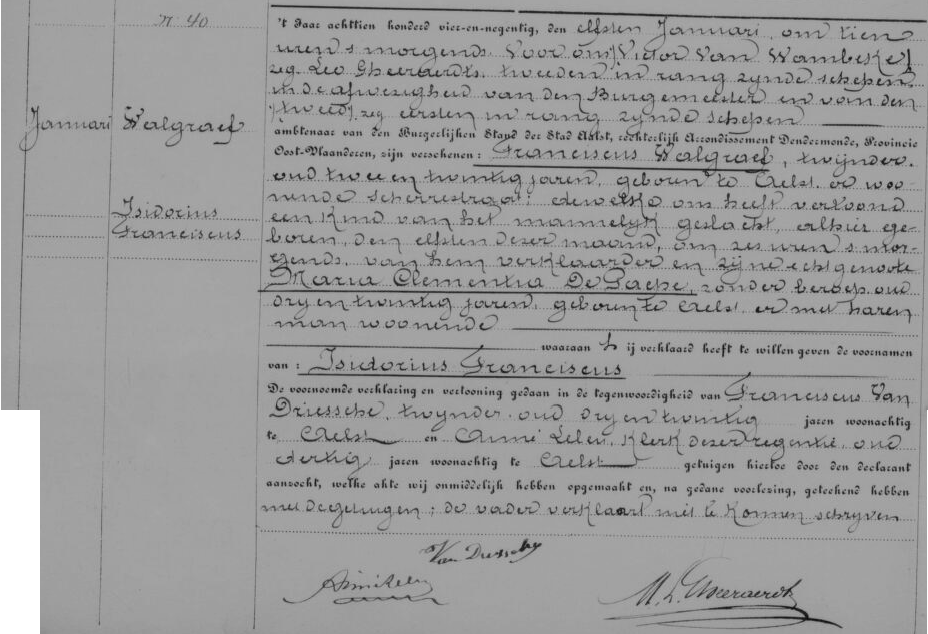 n. 40
Januari Walgraef
Isidorius
Franciscus
't Jaar achttien honderd vier-en-negentig, den elfsten Januari, om tien
uren s morgends, Voor ons [Victor Van Wambeke]
zeg Leo Gheeraerdts, tweeden in rang zynde schepen
in de afwezigheid van den Burgemeester en van den
[tweed] zeg eersten in rang zynde schepen
ambtenaar van den Burgerlijken Stand der Stad Aalst, rechterlijk Arrondissement Dendermonde, Provincie
Oost-Vlaanderen, zijn verschenen: Franciscus Walgraef, twynder,
oud twee en twintig jaren, geboren te Aelst, er woo-
nende scherrestraat; dewelke ons heeft vertoond
een Kind van het mannelyk geslacht, alhier ge-
boren, den elfsten dezer maand, om zes uren s mor-
gends, van hem verklaarder en zijne echtgenote
Maria Clementia De Pache, zonder beroep, oud
dry en twintig jaren, geboren te Aelst, er met haren
man woonende
waaraan h ij verklaard heeft te willen geven de voornamen
van: Isidorius Franciscus
De voornoemde verklaring en vertooning gedaan in de tegenwoordigheid van Franciscus Van
Driessche, twynder, oud dry en twintig jaren woonachtig
te Aelst en Aimé Leleu, Klerk dezer regentie, oud
dertig jaren woonachtig te Aelst getuigen hiertoe door den declarant
aanzocht, welke akte wij onmiddelijk hebben opgemaakt en, na gedane voorlezing, geteekend hebben
met de getuigen; de vader verklaart niet te konnen schryven
Van Driessche
M. L. Gheeraerdts